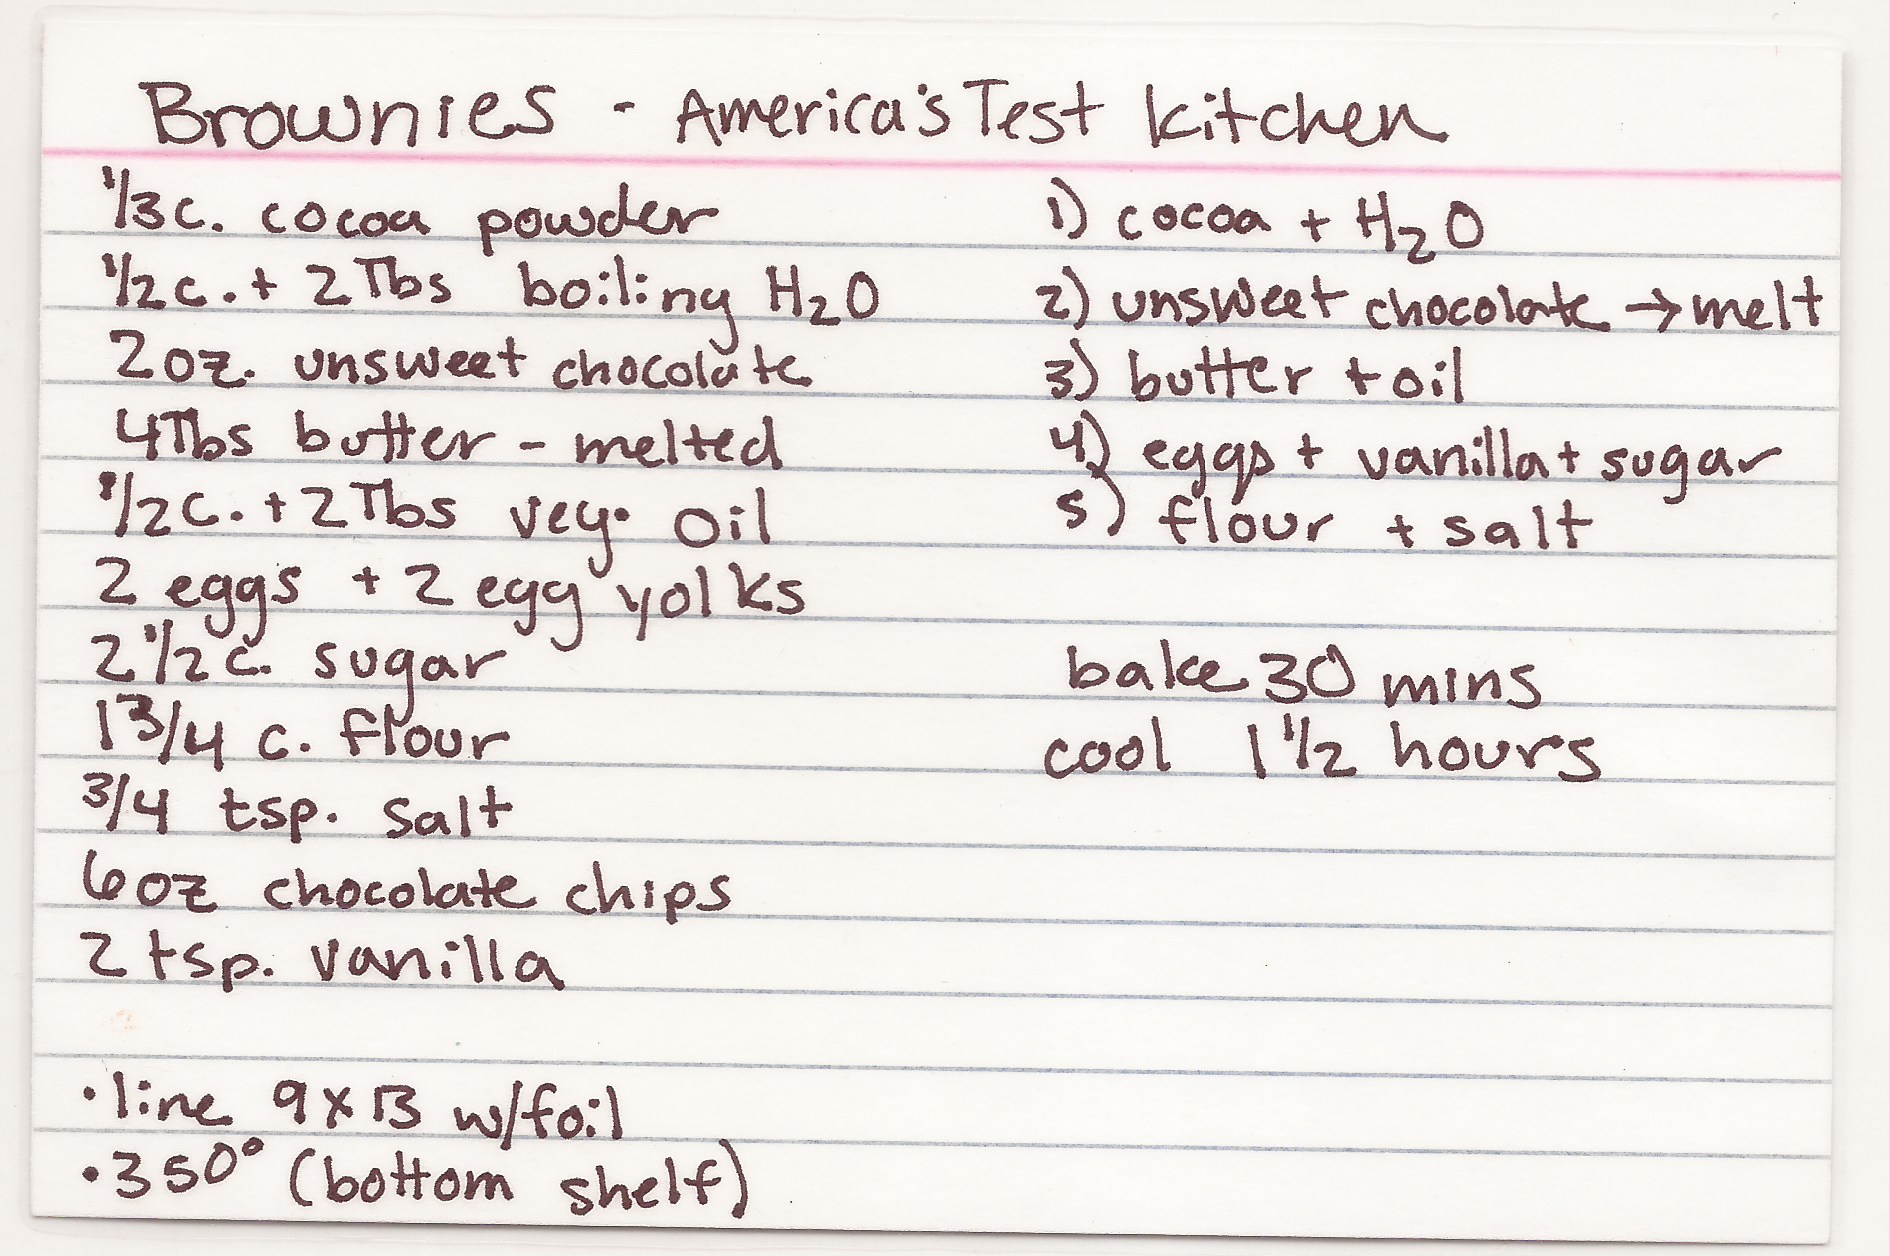 Brownies - America's Test Kitchen
1/3 c. cocoa powder
1/2 c. + 2 Tbs boiling H2O
2 oz. unsweet chocolate
4 Tbs butter - melted
1/2 c. + 2 Tbs veg. oil
2 eggs + 2 egg yolks
2 1/2 c. sugar
1 3/4 c. flour
3/4 tsp. salt
6 oz chocolate chips
2 tsp. vanilla
• line 9 x 13 w/foil
• 350° (bottom shelf)
1) cocoa + H2O
2) unsweet chocolate → melt
3) butter + oil
4) eggs + vanilla + sugar
5) flour + salt
bake 30 mins
cool 1 1/2 hours